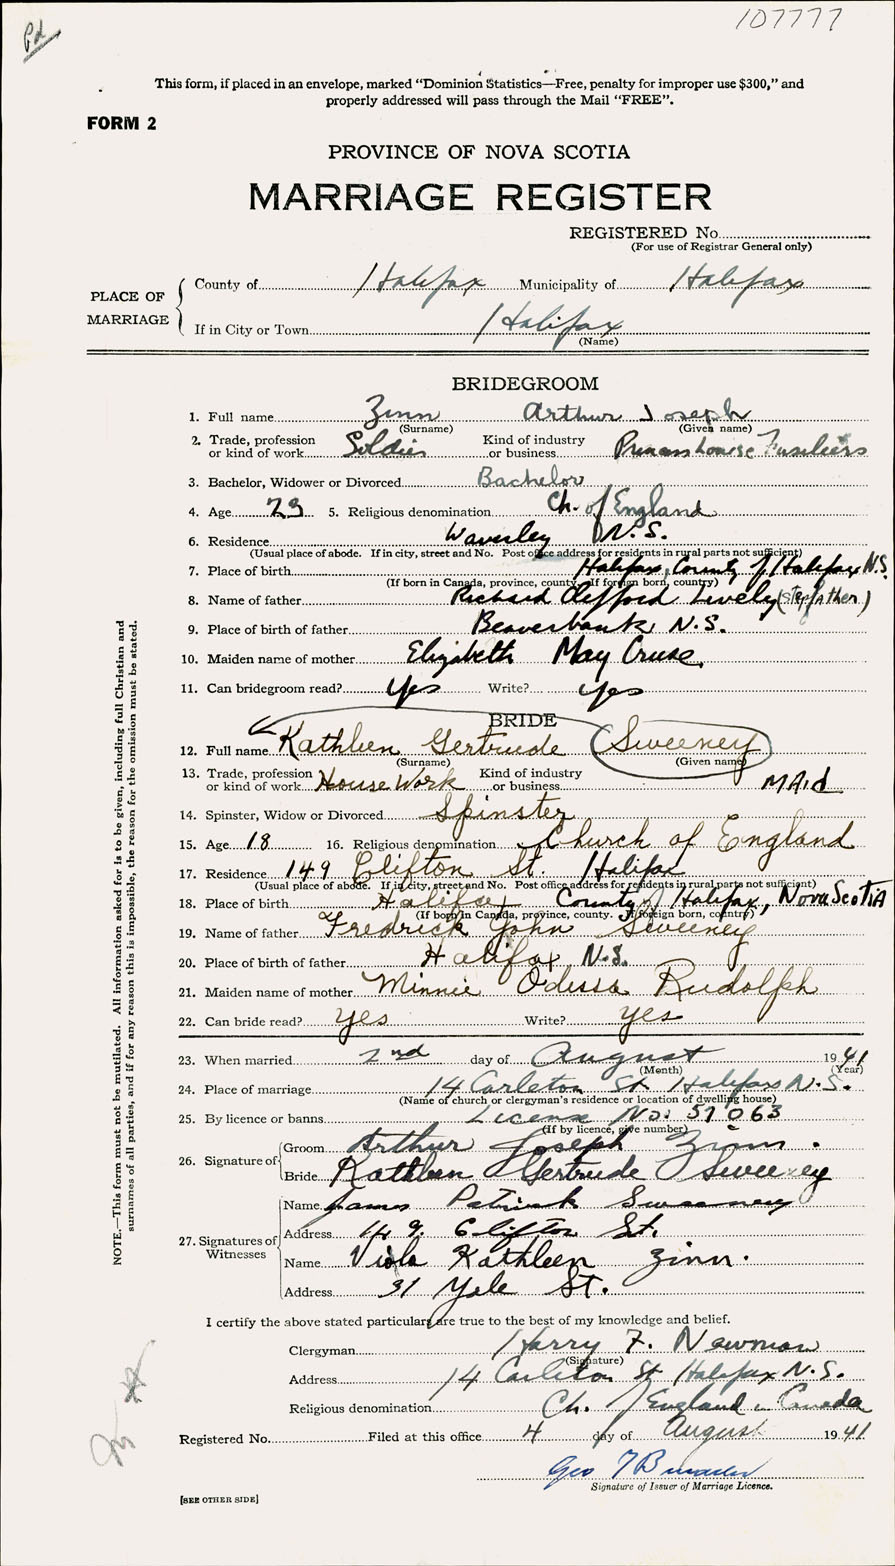 107777
Pd
This form, if placed in an envelope, marked “Dominion Statistics—Free, penalty for improper use $300,” and
properly addressed will pass through the Mail “FREE”.
FORM 2
PROVINCE OF NOVA SCOTIA
MARRIAGE REGISTER
REGISTERED No.
(For use of Registrar General only)
PLACE OF MARRIAGE
County of Halifax Municipality of Halifax
If in City or Town Halifax
(Name)
BRIDEGROOM
1. Full name Zinn Arthur Joseph
(Surname) (Given name)
2. Trade, profession or kind of work Soldier Kind of industry or business Princess Louise Fusiliers
3. Bachelor, Widower or Divorced Bachelor
4. Age 23 5. Religious denomination Ch. of England
6. Residence Waverley N.S.
(Usual place of abode. If in city, street and No. Post office address for residents in rural parts not sufficient)
7. Place of birth Halifax, County of Halifax N.S.
(If born in Canada, province, county. If foreign born, country)
8. Name of father Richard Clifford Lively (Stepfather)
9. Place of birth of father Beaverbank N.S.
10. Maiden name of mother Elizabeth May Cruse
11. Can bridegroom read? Yes Write? yes
BRIDE
12. Full name Kathleen Gertrude Sweeney
(Surname) (Given name)
13. Trade, profession or kind of work House Work Kind of industry or business MAid
14. Spinster, Widow or Divorced Spinster
15. Age 18 16. Religious denomination Church of England
17. Residence 149 Clifton St. Halifax
(Usual place of abode. If in city, street and No. Post office address for residents in rural parts not sufficient)
18. Place of birth Halifax County of Halifax, Nova Scotia
(If born in Canada, province, county. If foreign born, country)
19. Name of father Fredrick John Sweeney
20. Place of birth of father Halifax N.S.
21. Maiden name of mother Minnie Odessa Rudolph
22. Can bride read? yes Write? yes
23. When married 2nd day of August 1941
(Month) (Year)
24. Place of marriage 14 Carleton St Halifax N.S.
(Name of church or clergyman's residence or location of dwelling house)
25. By licence or banns License No. 57063
(If by licence, give number)
26. Signature of
Groom Arthur Joseph Zinn.
Bride Kathleen Gertrude Sweeney
27. Signatures of Witnesses
Name James Patrick Sweeney
Address 149 Clifton St.
Name Viola Kathleen Zinn.
Address 31 Yale St.
I certify the above stated particulars are true to the best of my knowledge and belief.
Clergyman Harry F. Newman
(Signature)
Address 14 Carleton St Halifax N.S.
Religious denomination Ch. of England in Canada
Registered No. Filed at this office 4 day of August 1941
Geo
Signature of Issuer of Marriage Licence.
[SEE OTHER SIDE]
NOTE.—This form must not be mutilated. All information asked for is to be given, including full Christian and
surnames of all parties, and if for any reason this is impossible, the reason for the omission must be stated.